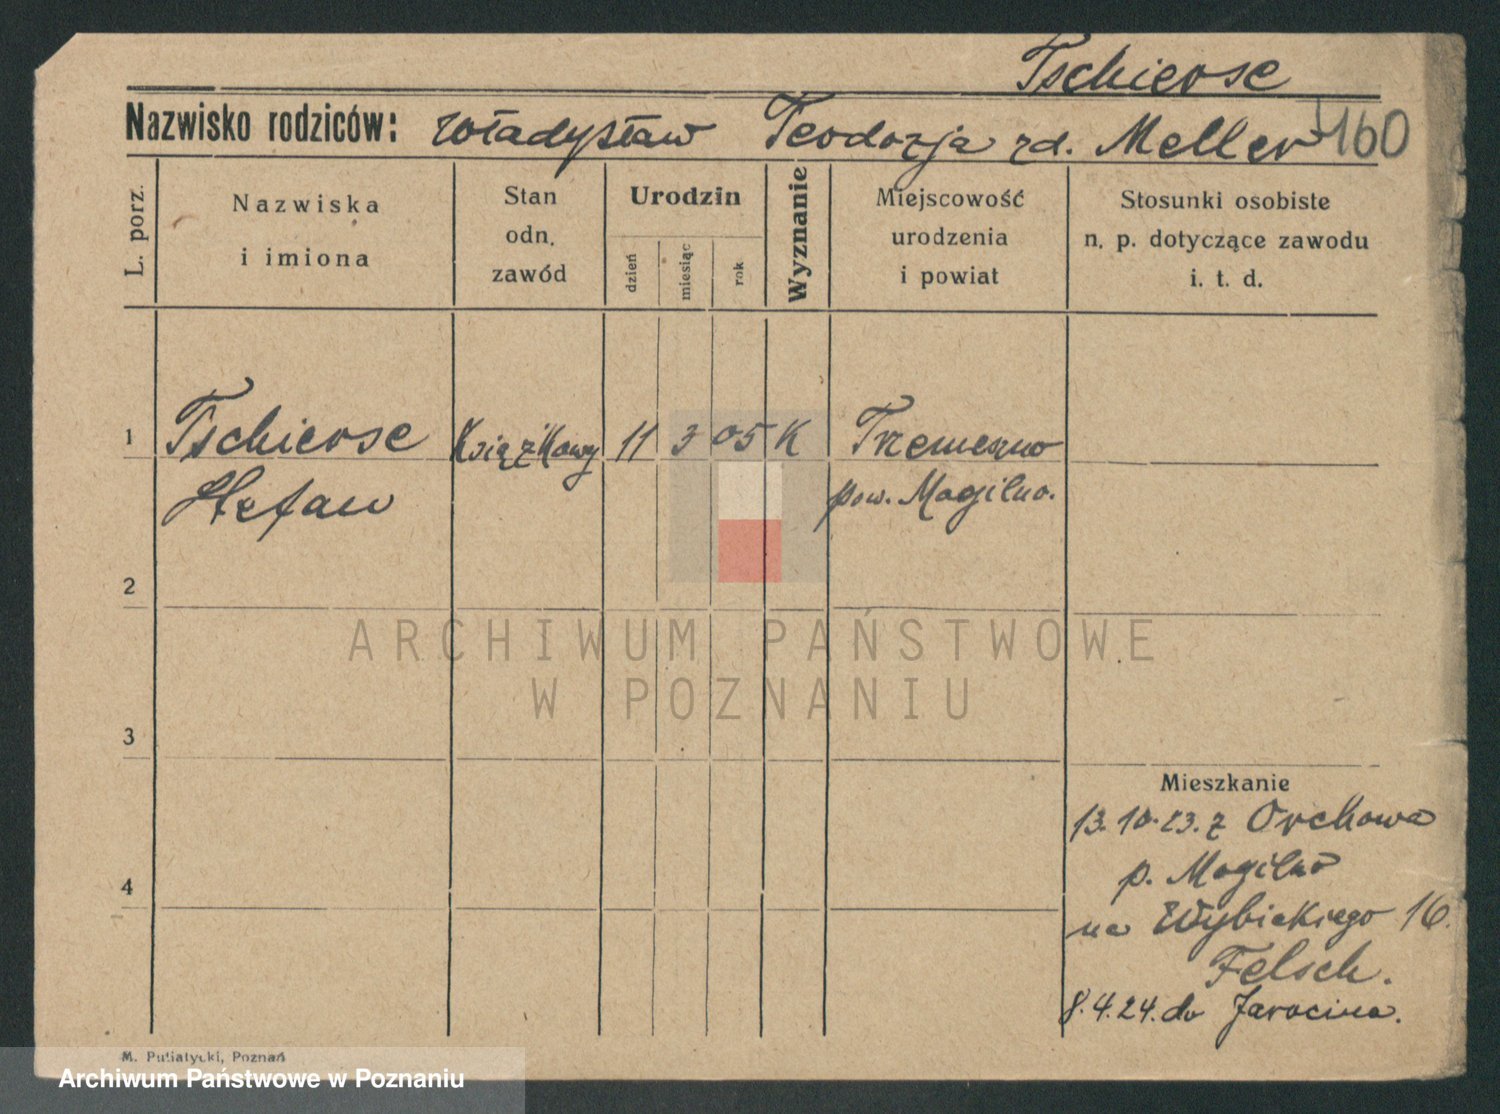 Tschierse
Nazwisko rodziców: Władysław Teodozja zd. Meller 160
L. porz.
Nazwiska
i imiona
Stan
odn.
zawód
Urodzin
dzień
miesiąc
rok
Wyznanie
Miejscowość
urodzenia
i powiat
Stosunki osobiste
n. p. dotyczące zawodu
i. t. d.
1 Tschierse Książkowy 11 3 05 K Trzemeszno
Stefan pow. Mogilno.
2
ARCHIWUM PAŃSTWOWE
W POZNANIU
3
Mieszkanie
13.10.23. z Orchowa
p. Mogilno
4
na Wybickiego 16.
Felsch.
8.4.24. do Jarocina.
M. Putiatycki, Poznań
Archiwum Państwowe w Poznaniu